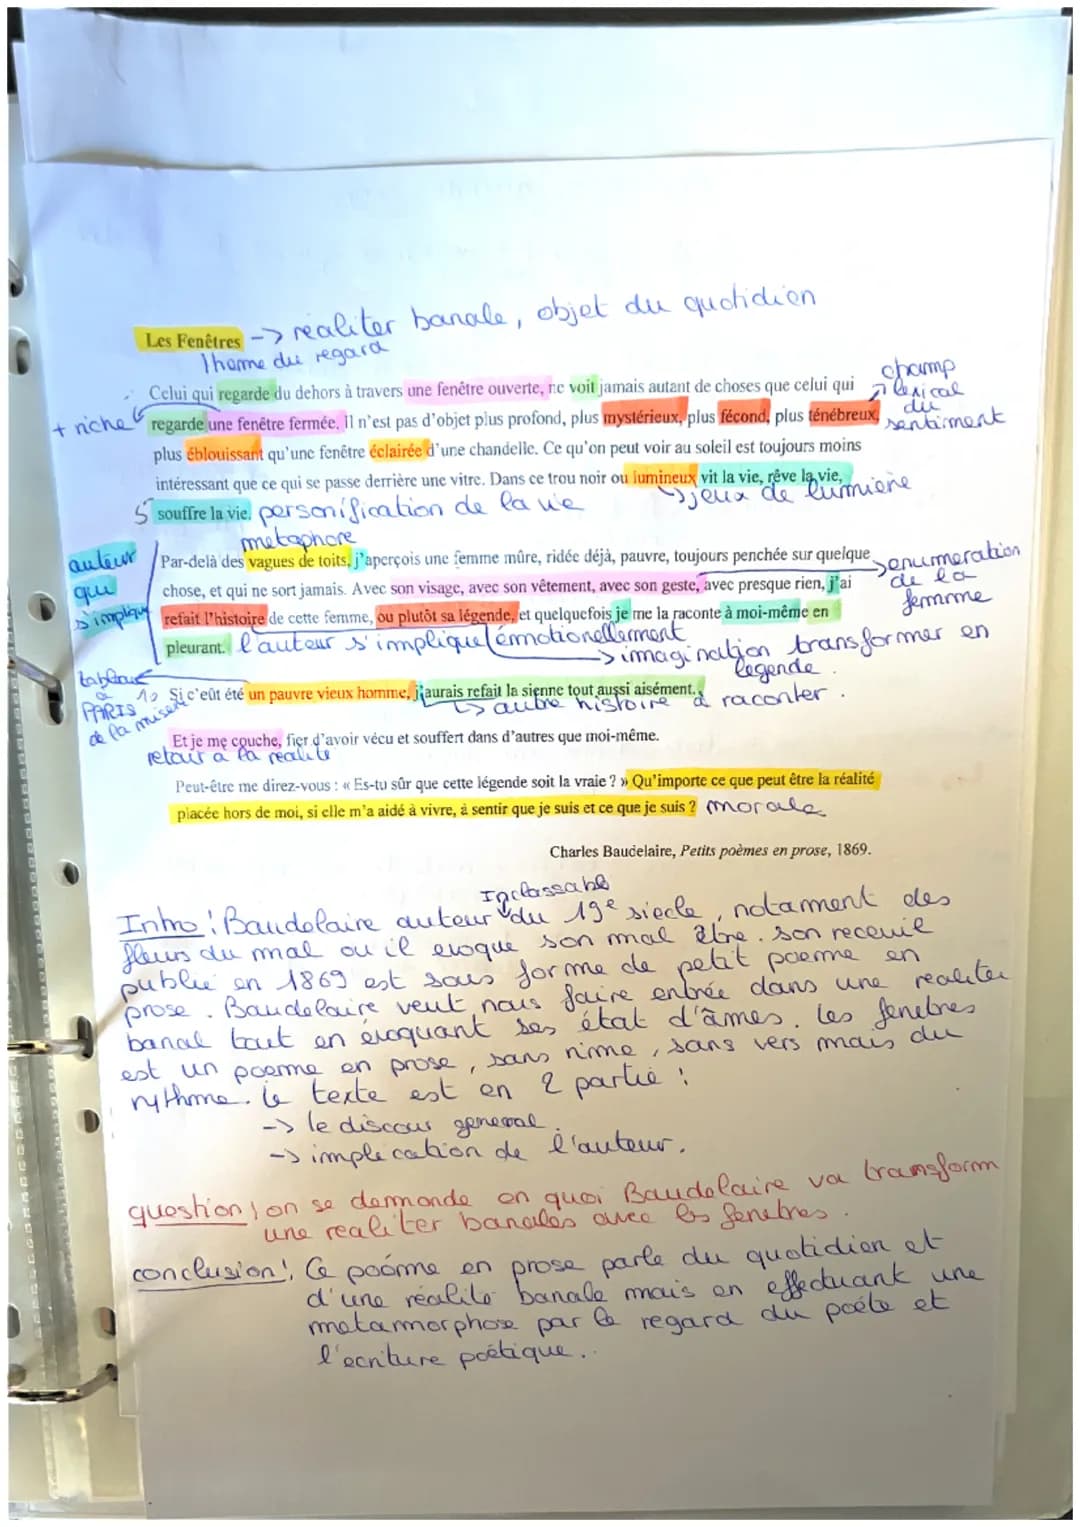 Les Fenêtres -> réaliter banale, objet du quotidien
thème du regard
Celui qui regarde du dehors à travers une fenêtre ouverte, ne voit jamais autant de choses que celui qui
champ lexical du sentiment
+ riche
regarde une fenêtre fermée. Il n'est pas d'objet plus profond, plus mystérieux, plus fécond, plus ténébreux,
plus éblouissant qu'une fenêtre éclairée d'une chandelle. Ce qu'on peut voir au soleil est toujours moins
intéressant que ce qui se passe derrière une vitre. Dans ce trou noir ou lumineux vit la vie, rêve la vie,
jeux de lumière
5 souffre la vie. personification de la vie
metaphore
auteur qui s'implique
Par-delà des vagues de toits, j'aperçois une femme mûre, ridée déjà, pauvre, toujours penchée sur quelque
enumeration de la femme
chose, et qui ne sort jamais. Avec son visage, avec son vêtement, avec son geste, avec presque rien, j'ai
refait l'histoire de cette femme, ou plutôt sa légende, et quelquefois je me la raconte à moi-même en
pleurant. l'auteur s'implique émotionellement
-> imagination transformer en legende.
tableau a PARIS de la misère
10 Si c'eût été un pauvre vieux homme, j'aurais refait la sienne tout aussi aisément.
-> autre histoire a raconter.
Et je me couche, fier d'avoir vécu et souffert dans d'autres que moi-même.
retour a la realite
Peut-être me direz-vous : « Es-tu sûr que cette légende soit la vraie ? » Qu'importe ce que peut être la réalité
placée hors de moi, si elle m'a aidé à vivre, à sentir que je suis et ce que je suis ? morale
Charles Baudelaire, Petits poèmes en prose, 1869.
Inclassable
Intro : Baudelaire auteur du 19e siecle, notamment des
fleurs du mal ou il evoque son mal être. son receuil
publié en 1869 est sous forme de petit poeme en
prose. Baudelaire veut nous faire entrée dans une realiter
banal tout en évoquant ses état d'âmes. les fenetres
est un poeme en prose, sans rime, sans vers mais du
rythme. le texte est en 2 partie :
-> le discour general.
-> implication de l'auteur.
question : on se demande en quoi Baudelaire va transform
une realiter banales avec les fenetres.
conclusion : Ce poème en prose parle du quotidien et
d'une réalité banale mais en effectuant une
metamorphose par le regard du poète et
l'ecriture poétique.